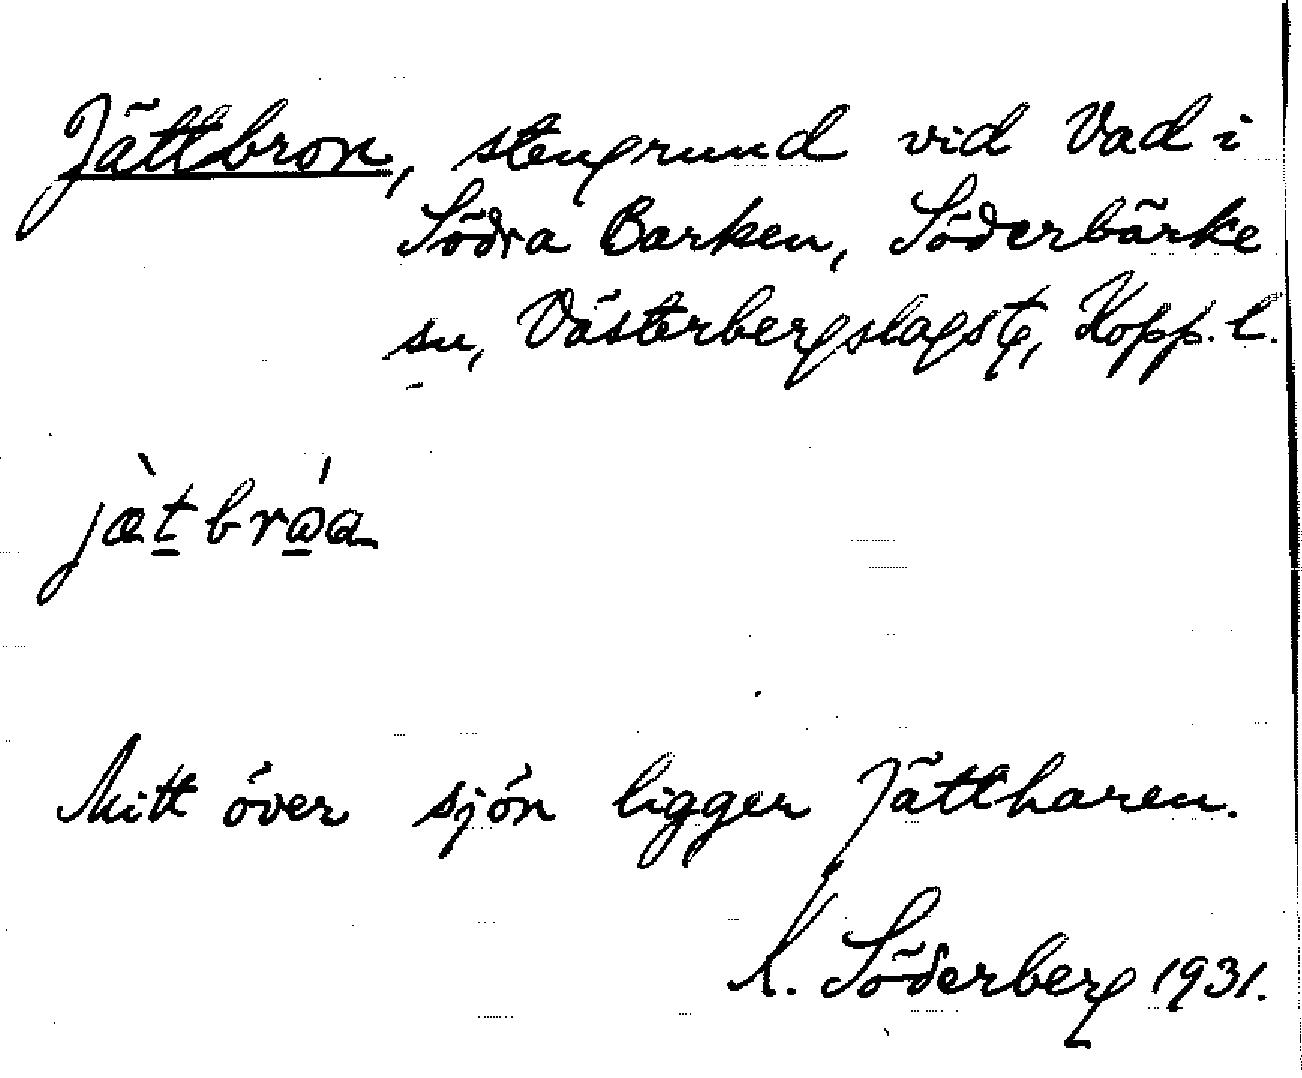 Jättbron, stengrund vid Vad i
Södra Barken, Söderbärke
sn, Västerbergslags tg, Kopp. l.
jæ̀t brω̇́a
Mitt över sjön ligger Jättharen.
K. Söderberg 1931.